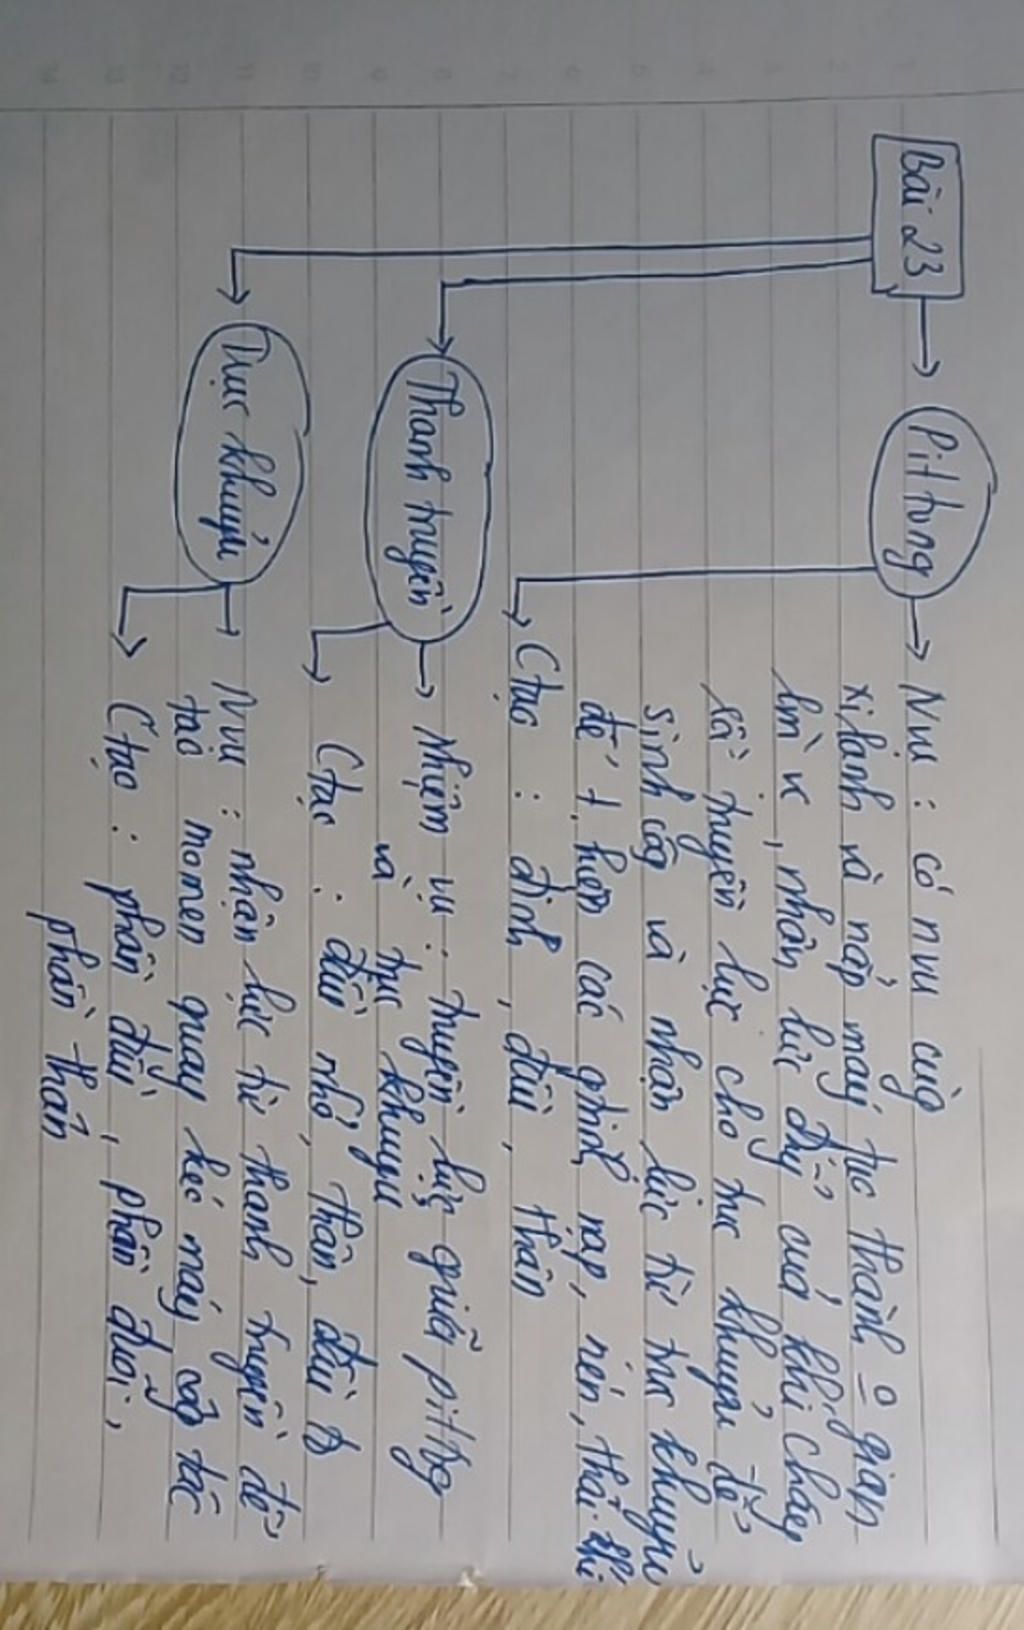 Bài 23
Pit tông
N.vụ : có n.vụ cùg
xilanh và nắp máy tạc thành 0 gian
lmv, nhận lực đẩy của khí cháy
rồi truyền lực cho trục khuỷu để
sinh côg và nhận lực từ trục khuỷu
để t.hiện các qtrình nạp, nén, thải khí
Ctạo : đỉnh, đầu, thân
Thanh truyền
Nhiệm vụ : truyền lực giữa pittôg
và trục khuỷu
Ctạo : đầu nhỏ, thân, đầu to
Trục khuỷu
N.vụ : nhận lực từ thanh truyền để
tạo momen quay kéo máy côg tác
Ctạo : phần đầu, phần đuôi,
phần thân